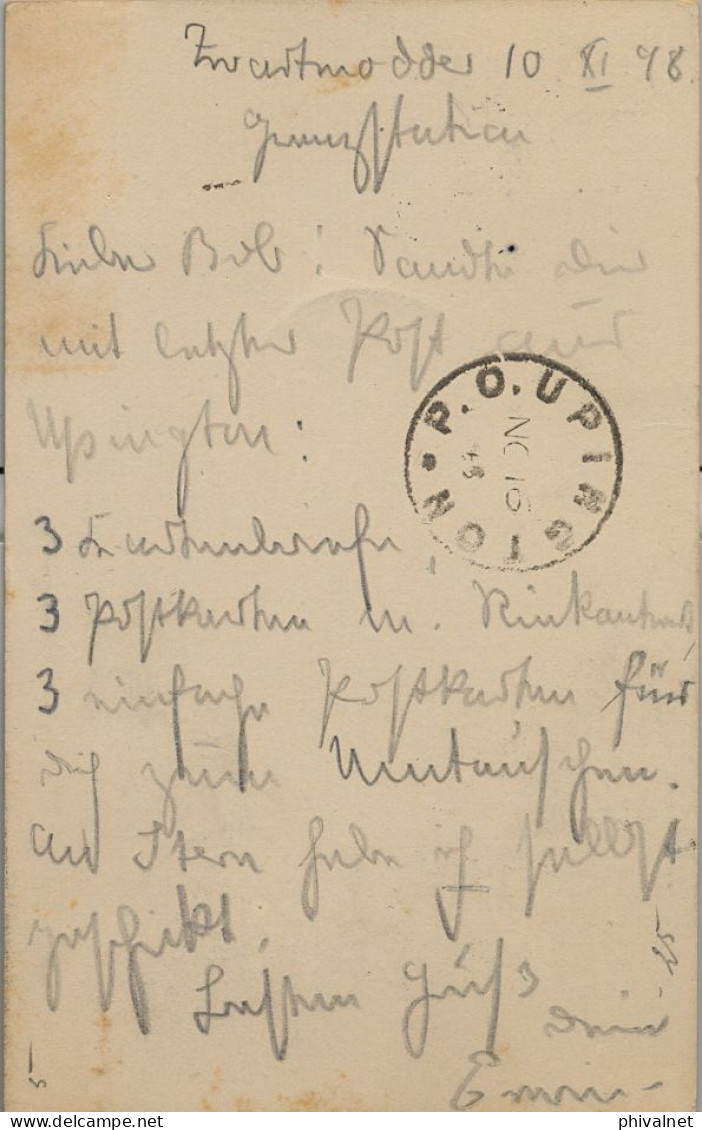 Zwartmodder 10 XI 98.
Grenzstation
Lieber Bob! Sandte dir
mit letzter Post aus
Upington:
P.O. UPINGTON
NO 16
98
3 Kartenbriefe,
3 Postkarten m. Rückantwort,
3 einfache Postkarten für
dich zum Umtauschen.
An Stern habe ich selbst
geschickt.
Besten Gruß
dein
Erwin
phivalnet